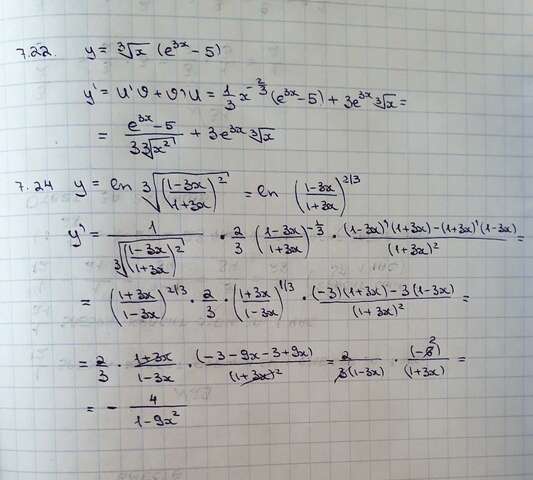 7.22. y = ∛x (e^{3x} - 5)
y' = u'v + v'u = 1/3 x^{-2/3} (e^{3x} - 5) + 3e^{3x} ∛x =
= (e^{3x} - 5)/(3∛(x²)) + 3e^{3x} ∛x
7.24 y = ln ∛(((1-3x)/(1+3x))²) = ln ((1-3x)/(1+3x))^{2/3}
y' = 1/∛(((1-3x)/(1+3x))²) · 2/3 · ((1-3x)/(1+3x))^{-1/3} · ((1-3x)'(1+3x) - (1+3x)'(1-3x))/(1+3x)² =
= ((1+3x)/(1-3x))^{2/3} · 2/3 · ((1+3x)/(1-3x))^{1/3} · ((-3)(1+3x) - 3(1-3x))/(1+3x)² =
= 2/3 · (1+3x)/(1-3x) · (-3-9x-3+9x)/(1+3x)² = 2/(3(1-3x)) · (-6)²/(1+3x) =
= - 4/(1-9x²)